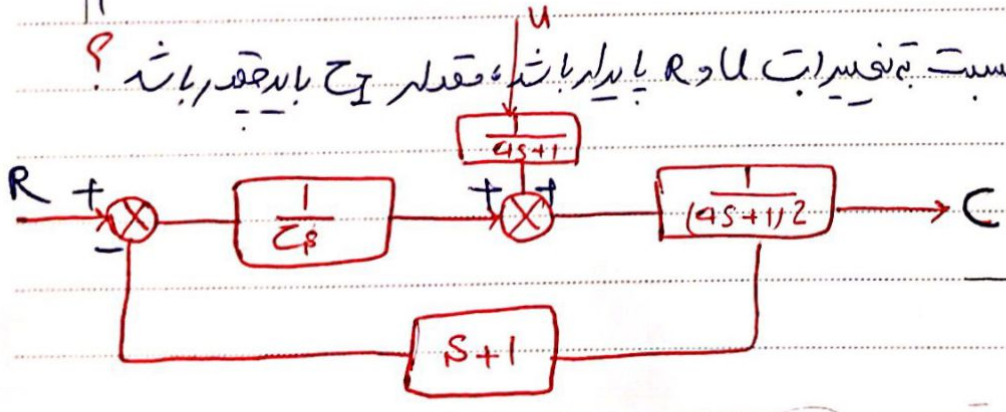 U
نسبت به تغییرات U و R پایدار باشد، مقدار τI باید چقدر باشد؟
1/(4s+1)
R + − 1/(τIs) + + 1/(4s+1)2 C
S+1